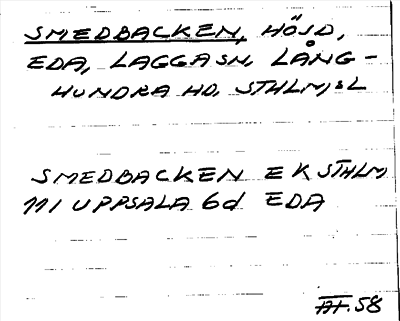 SMEDBACKEN, HÖJD,
EDA, LAGGA SN, LÅNG-
HUNDRA HD, STHLMS L
SMEDBACKEN E K STHLM
111 UPPSALA 6d EDA
58